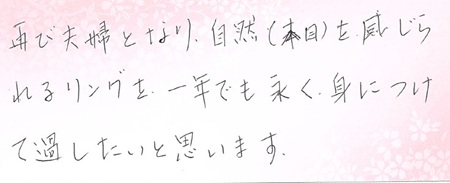 再び夫婦となり、自然(木目)を感じら
れるリングを、一年でも永く、身につけ
て過したいと思います.